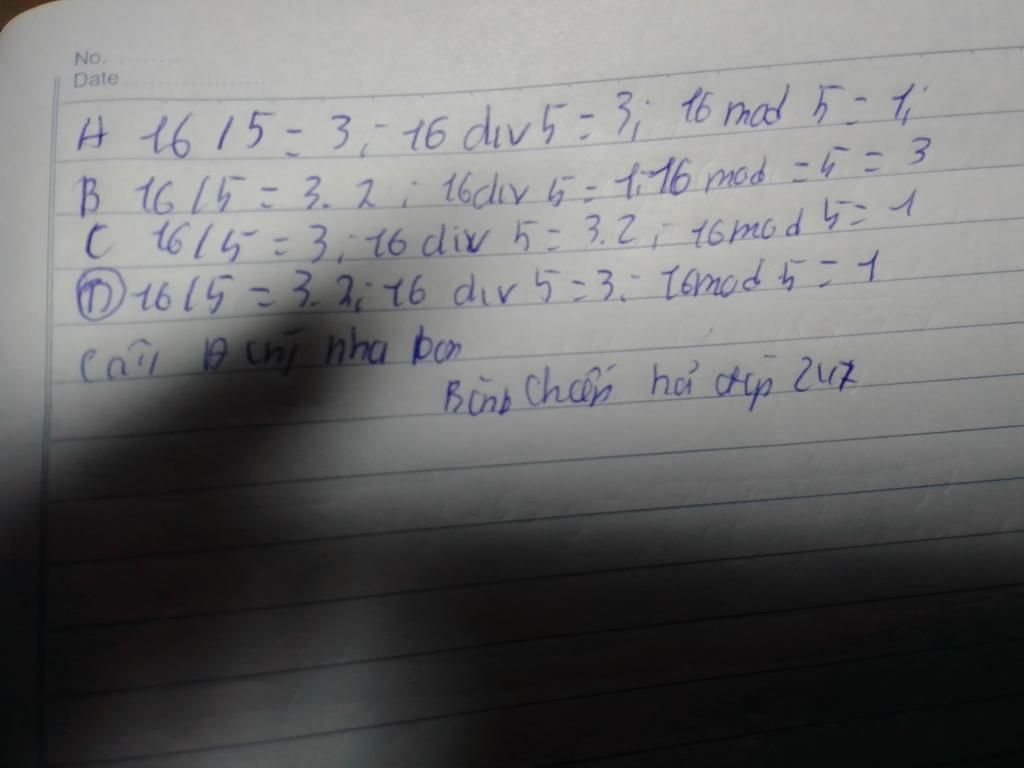 No.
Date
A 16 / 5 = 3; 16 div 5 = 3; 16 mod 5 = 1;
B 16 / 5 = 3.2; 16 div 5 = 1; 16 mod = 5 = 3
C 16 / 5 = 3; 16 div 5 = 3.2; 16 mod 5 = 1
D 16 / 5 = 3.2; 16 div 5 = 3; 16 mod 5 = 1
Câu D nha bạn
247